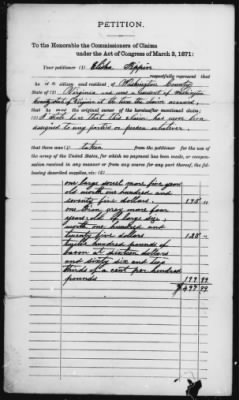 PETITION.
To the Honorable the Commissioners of Claims
under the Act of Congress of March 3, 1871:
Your petitioner (1) Elisha Pippin
respectfully represent that
he is a citizen and resident of Washington County
State of Virginia and was a resident of Washington
County State of Virginia at the time the claim accrued,
that he was the original owner of the hereinafter mentioned claim;
(2) I state here that this claim has never been
assigned to any parties or person whatever.
that there was (3) taken from the petitioner for the use of
the army of the United States, for which no payment has been made, or compen-
sation received in any manner or from any source for any part thereof, the fol-
lowing described supplies, viz: (4)
one large sorrel mare five years
old worth one hundred and
seventy five dollars. 175 "
one iron gray mare four
years old of large size,
worth one hundred and
twenty five dollars 125 "
twelve hundred pounds of
bacon at sixteen dollars
and sixty six and two
thirds of a cent per hundred
pounds 199.99
$499.99